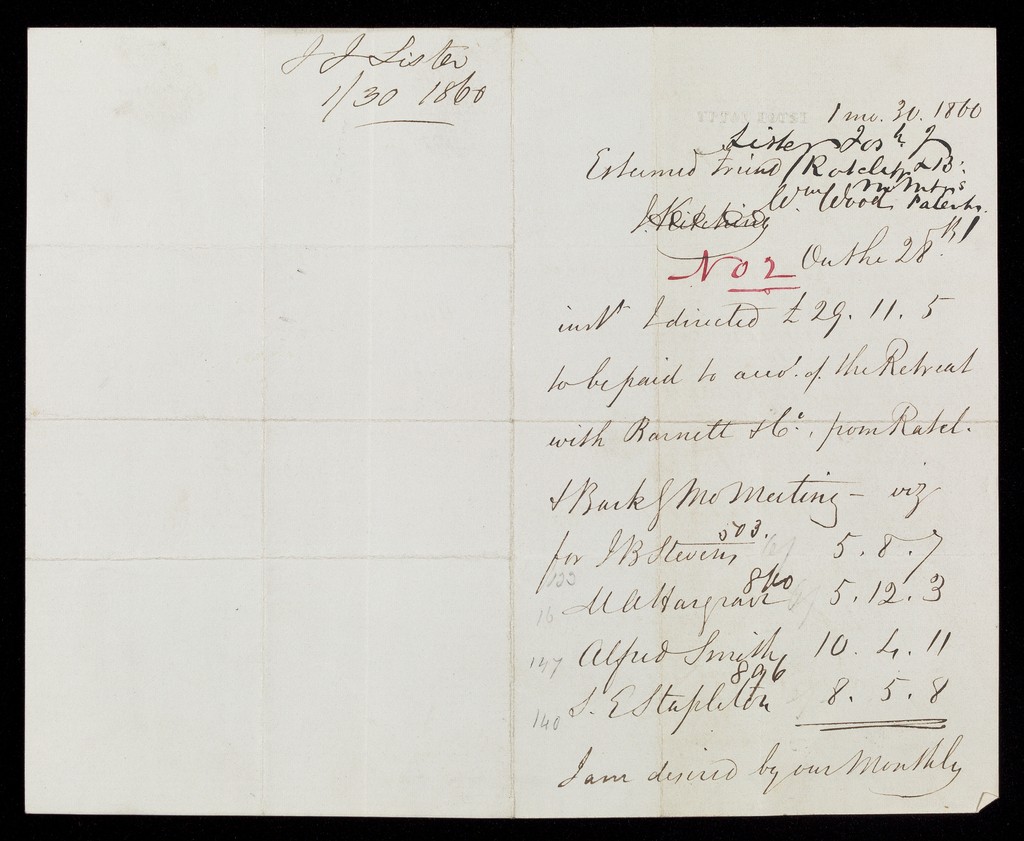 J J Lister
1/30 1860
1 mo. 30. 1860
Lister Josh J
Esteemed Friend
Ratcliff & B:
Mo Mtgs
Wm Wood Patents.
J. Kitching
No 2
On the 28th
inst I directed £ 29. 11. 5
to be paid to acco. of the Retreat
with Barnett & Co., from Ratcl.
& Barkg Mo Meeting - viz
503.
for J B Stevens 5. 8. 7
133
860
16 M A Hargrave 5. 12. 3
147 Alfred Smith 10. 4. 11
896
140 S. E Stapleton 8. 5. 8
I am desired by our Monthly